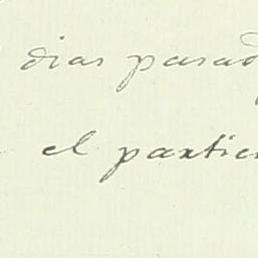 dias parad
el partic